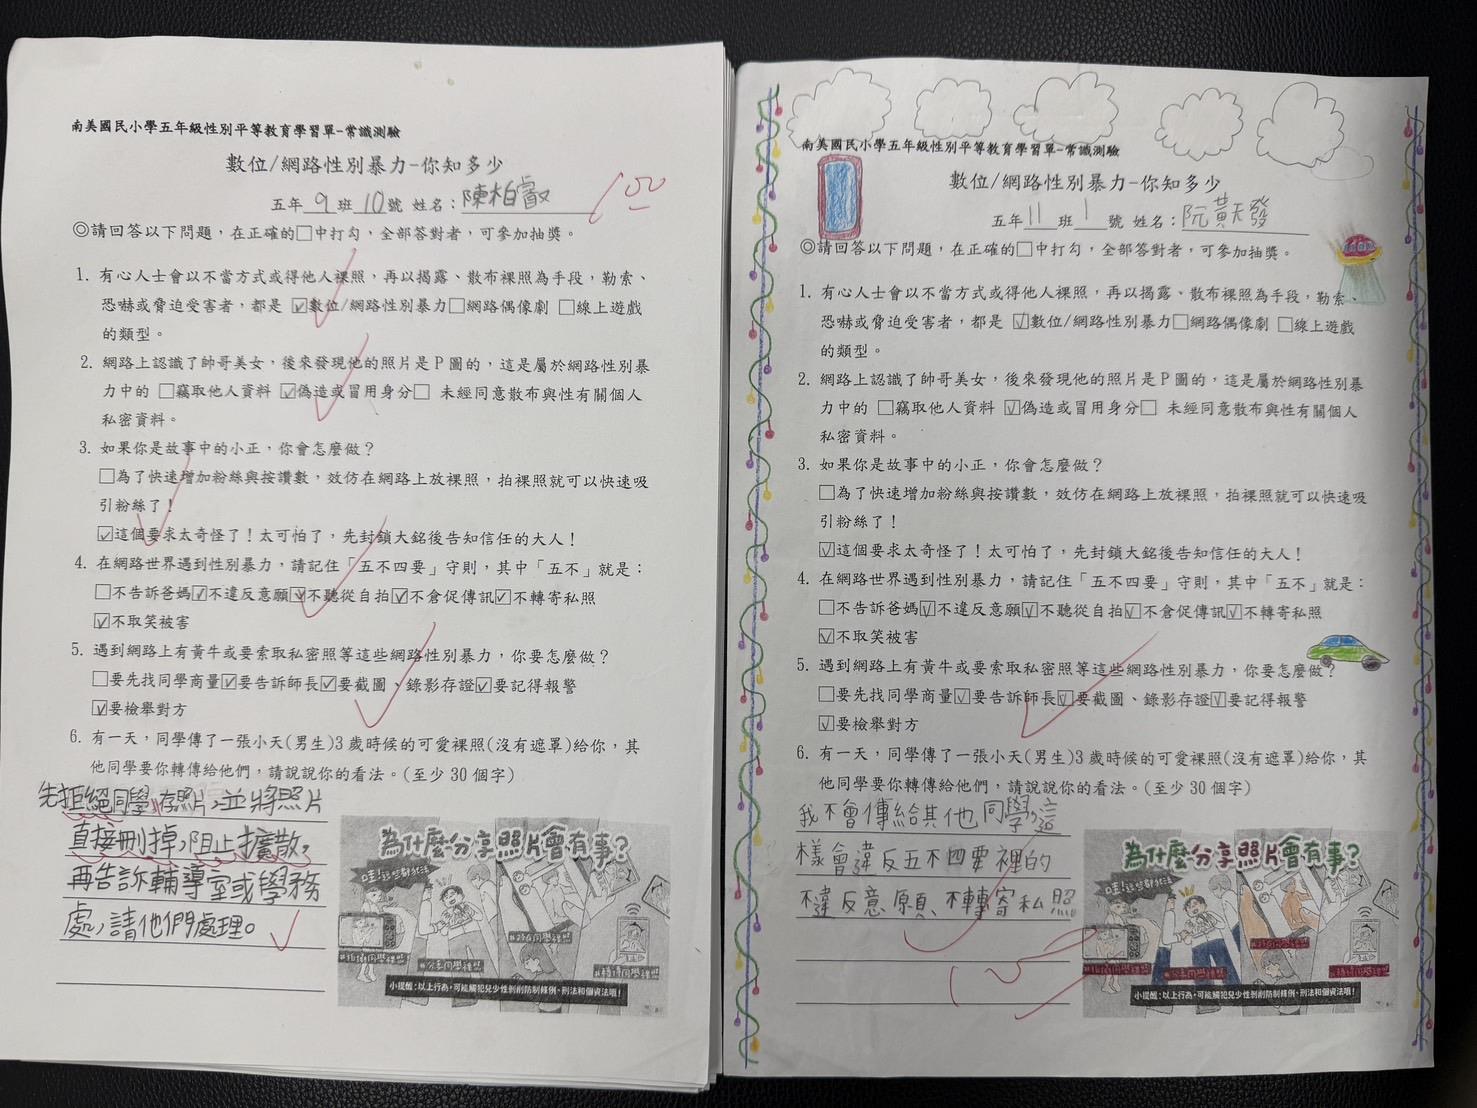 南美國民小學五年級性別平等教育學習單-常識測驗
數位/網路性別暴力-你知多少
五年 9 班 10 號 姓名：陳柏叡
100
◎請回答以下問題，在正確的□中打勾，全部答對者，可參加抽獎。
1. 有心人士會以不當方式或得他人裸照，再以揭露、散布裸照為手段，勒索、
恐嚇或脅迫受害者，都是 ☑數位/網路性別暴力□網路偶像劇 □線上遊戲
的類型。
2. 網路上認識了帥哥美女，後來發現他的照片是P圖的，這是屬於網路性別暴
力中的 □竊取他人資料 ☑偽造或冒用身分□ 未經同意散布與性有關個人
私密資料。
3. 如果你是故事中的小正，你會怎麼做？
□為了快速增加粉絲與按讚數，效仿在網路上放裸照，拍裸照就可以快速吸
引粉絲了！
☑這個要求太奇怪了！太可怕了，先封鎖大銘後告知信任的大人！
4. 在網路世界遇到性別暴力，請記住「五不四要」守則，其中「五不」就是：
□不告訴爸媽☑不違反意願☑不聽從自拍☑不倉促傳訊☑不轉寄私照
☑不取笑被害
5. 遇到網路上有黃牛或要索取私密照等這些網路性別暴力，你要怎麼做？
□要先找同學商量☑要告訴師長☑要截圖、錄影存證☑要記得報警
☑要檢舉對方
6. 有一天，同學傳了一張小天(男生)3歲時候的可愛裸照(沒有遮罩)給你，其
他同學要你轉傳給他們，請說說你的看法。(至少30個字)
先拒絕同學存照片，並將照片
直接刪掉，阻止擴散，
再告訴輔導室或學務
處，請他們處理。
為什麼分享照片會有事？
哇！這些都犯法
#偷拍同學裸照
#分享同學裸照
#持有同學裸照
#轉傳同學裸照
小提醒：以上行為，可能觸犯兒少性剝削防制條例、刑法和個資法哦！
南美國民小學五年級性別平等教育學習單-常識測驗
數位/網路性別暴力-你知多少
五年 11 班 1 號 姓名：阮黃天發
◎請回答以下問題，在正確的□中打勾，全部答對者，可參加抽獎。
1. 有心人士會以不當方式或得他人裸照，再以揭露、散布裸照為手段，勒索、
恐嚇或脅迫受害者，都是 ☑數位/網路性別暴力□網路偶像劇 □線上遊戲
的類型。
2. 網路上認識了帥哥美女，後來發現他的照片是P圖的，這是屬於網路性別暴
力中的 □竊取他人資料 ☑偽造或冒用身分□ 未經同意散布與性有關個人
私密資料。
3. 如果你是故事中的小正，你會怎麼做？
□為了快速增加粉絲與按讚數，效仿在網路上放裸照，拍裸照就可以快速吸
引粉絲了！
☑這個要求太奇怪了！太可怕了，先封鎖大銘後告知信任的大人！
4. 在網路世界遇到性別暴力，請記住「五不四要」守則，其中「五不」就是：
□不告訴爸媽☑不違反意願☑不聽從自拍☑不倉促傳訊☑不轉寄私照
☑不取笑被害
5. 遇到網路上有黃牛或要索取私密照等這些網路性別暴力，你要怎麼做？
□要先找同學商量☑要告訴師長☑要截圖、錄影存證☑要記得報警
☑要檢舉對方
6. 有一天，同學傳了一張小天(男生)3歲時候的可愛裸照(沒有遮罩)給你，其
他同學要你轉傳給他們，請說說你的看法。(至少30個字)
我不會傳給其他同學，這
樣會違反五不四要裡的
不違反意願、不轉寄私照
100
為什麼分享照片會有事？
哇！這些都犯法
#偷拍同學裸照
#分享同學裸照
#持有同學裸照
#轉傳同學裸照
小提醒：以上行為，可能觸犯兒少性剝削防制條例、刑法和個資法哦！